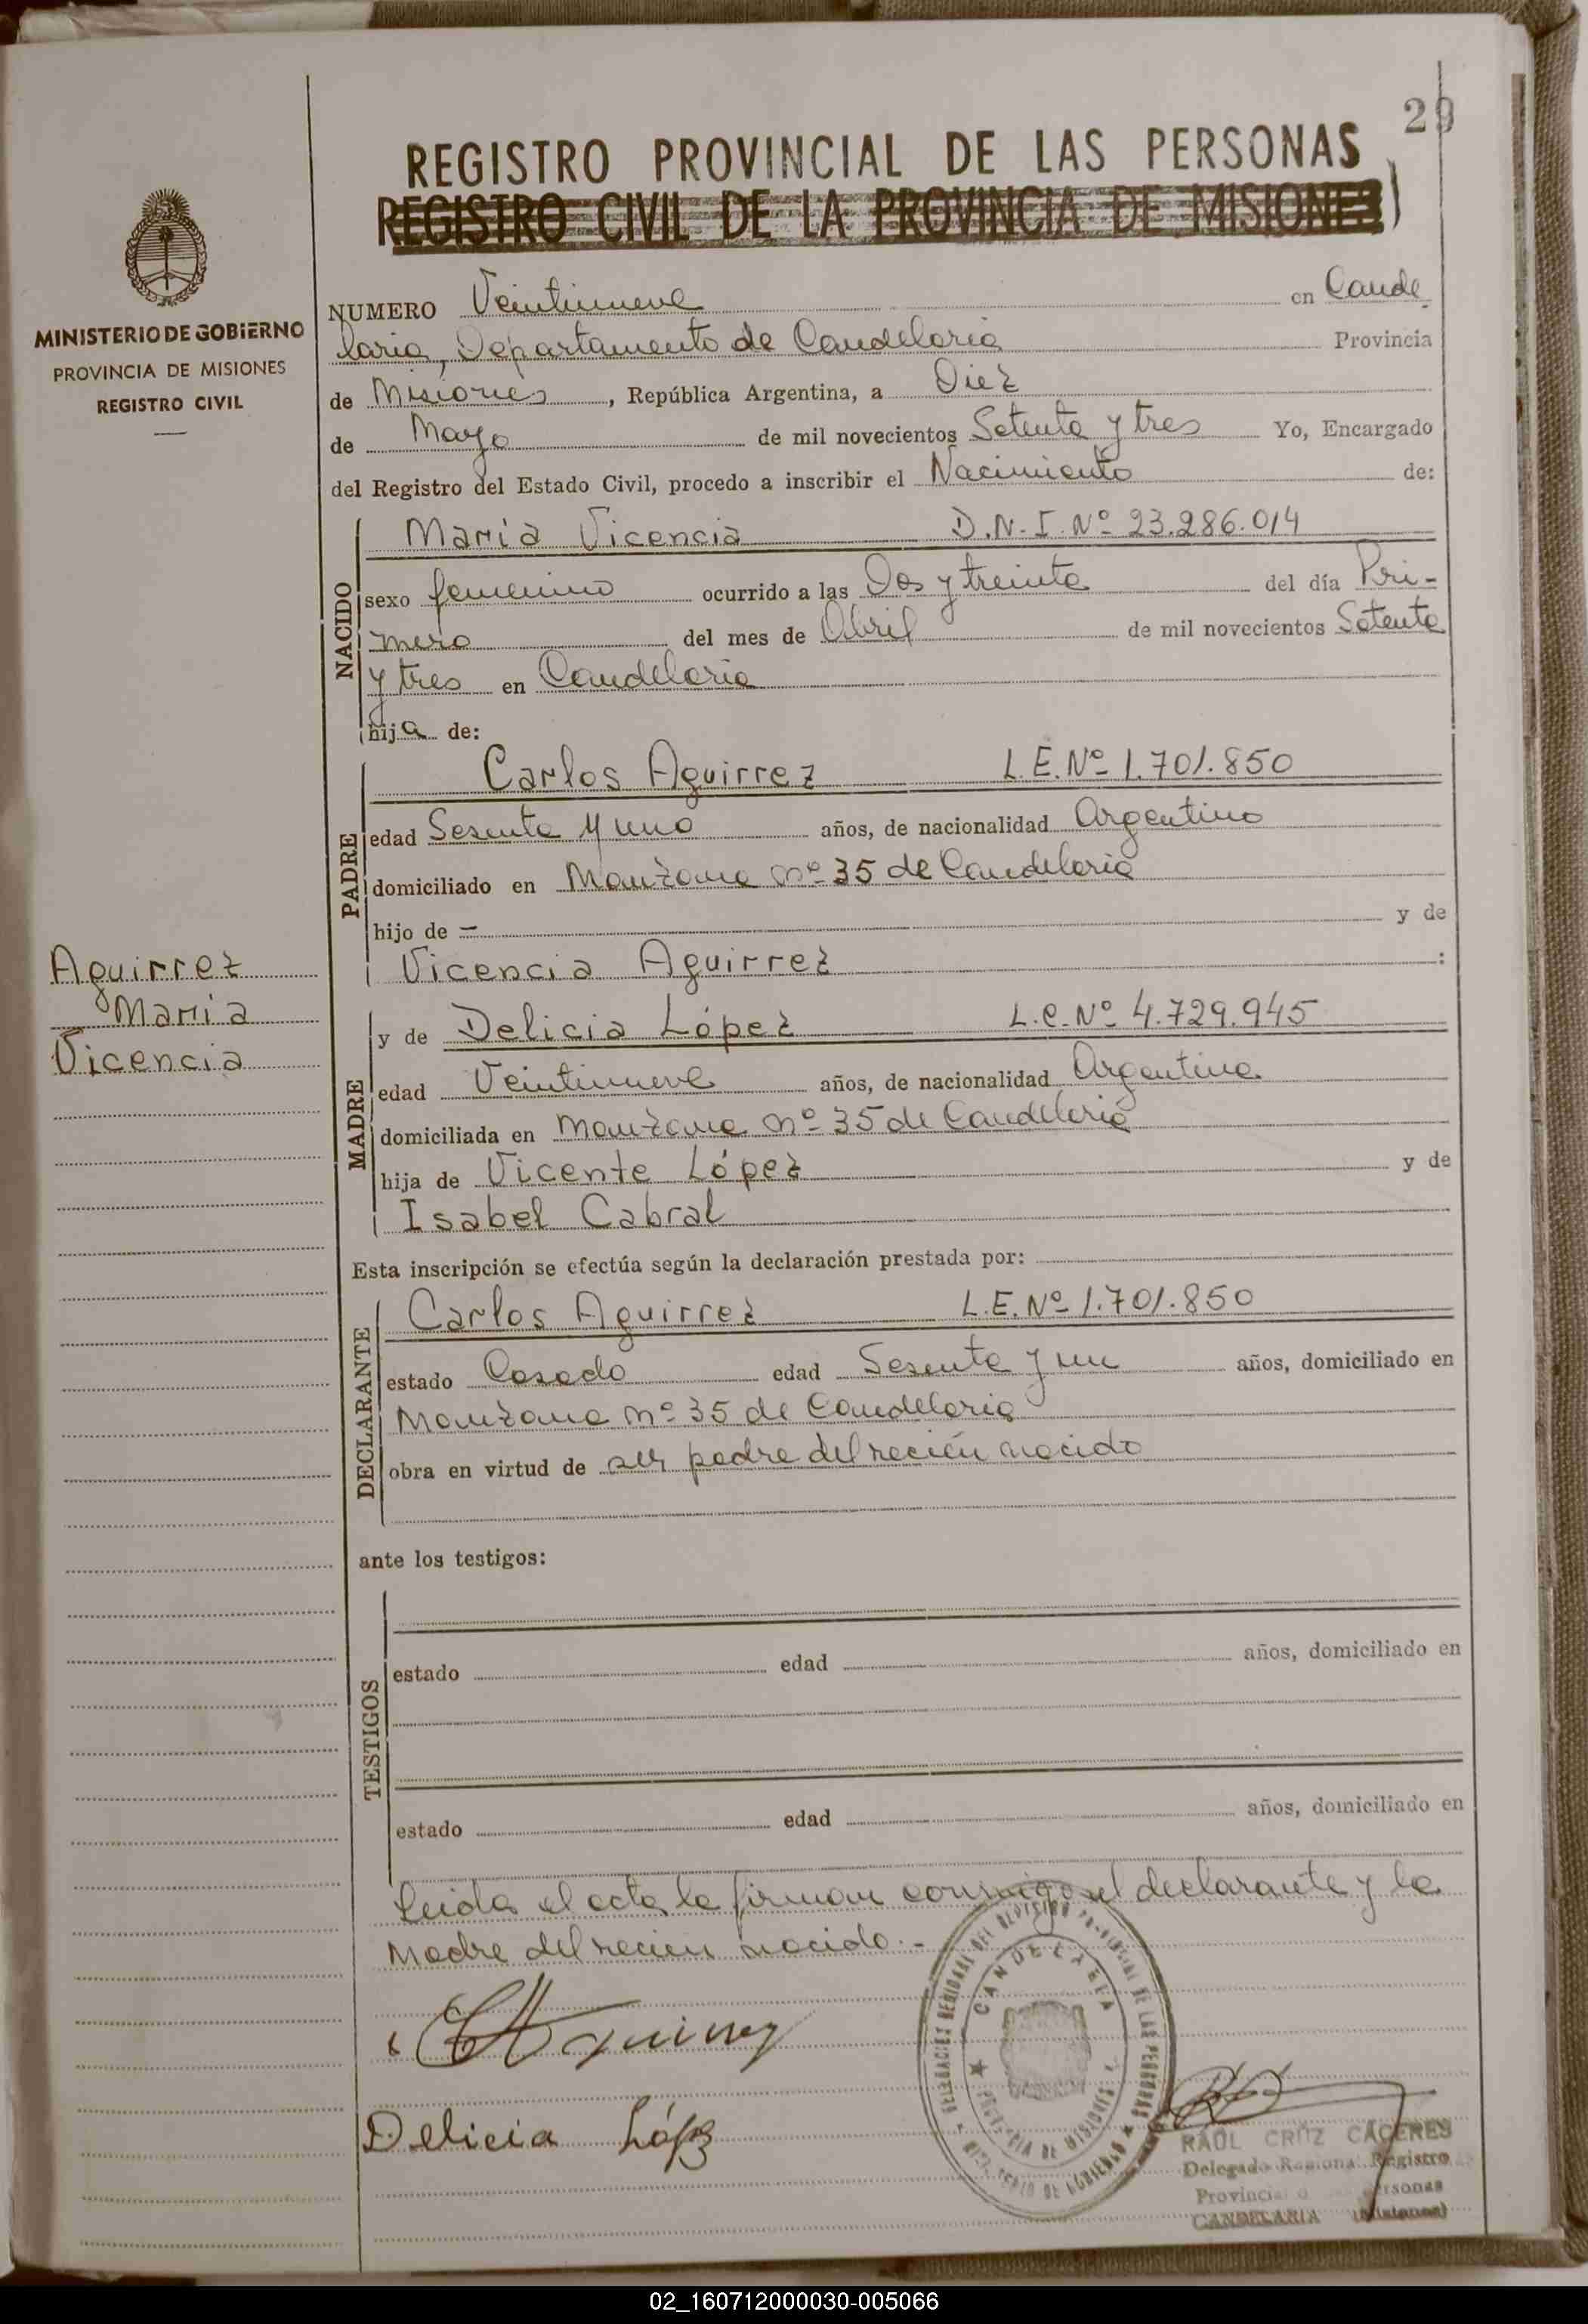 29
REGISTRO PROVINCIAL DE LAS PERSONAS
REGISTRO CIVIL DE LA PROVINCIA DE MISIONES
MINISTERIO DE GOBIERNO
PROVINCIA DE MISIONES
REGISTRO CIVIL
NUMERO Veintinueve en Cande
laria, Departamento de Candelaria Provincia
de Misiones, República Argentina, a Diez
de Mayo de mil novecientos Setenta y tres Yo, Encargado
del Registro del Estado Civil, procedo a inscribir el Nacimiento de:
NACIDO
María Vicencia D.N.I. Nº 23.286.014
sexo femenino ocurrido a las Dos y treinta del día Pri-
mero del mes de Abril de mil novecientos Setenta
y tres en Candelaria
hija de:
PADRE
Carlos Aguirrez L.E. Nº 1.701.850
edad Sesenta y uno años, de nacionalidad Argentino
domiciliado en Manzana nº 35 de Candelaria
hijo de — y de
Vicencia Aguirrez :
Aguirrez
Maria
Vicencia
MADRE
y de Delicia López L.C. Nº 4.729.945
edad Veintinueve años, de nacionalidad Argentina
domiciliada en Manzana nº 35 de Candelaria
hija de Vicente López y de
Isabel Cabral
Esta inscripción se efectúa según la declaración prestada por:
DECLARANTE
Carlos Aguirrez L.E. Nº 1.701.850
estado Casado edad Sesenta y un años, domiciliado en
Manzana nº 35 de Candelaria
obra en virtud de ser padre del recién nacido
ante los testigos:
TESTIGOS
estado edad años, domiciliado en
estado edad años, domiciliado en
Leida el acta la firman conmigo el declarante y la
Madre del recien nacido.-
CANDELARIA
PROVINCIA DE MISIONES
Delicia López
RAUL CRUZ CACERES
Delegado Regional Registro
Provincial Personas
CANDELARIA (Misiones)
02_160712000030-005066